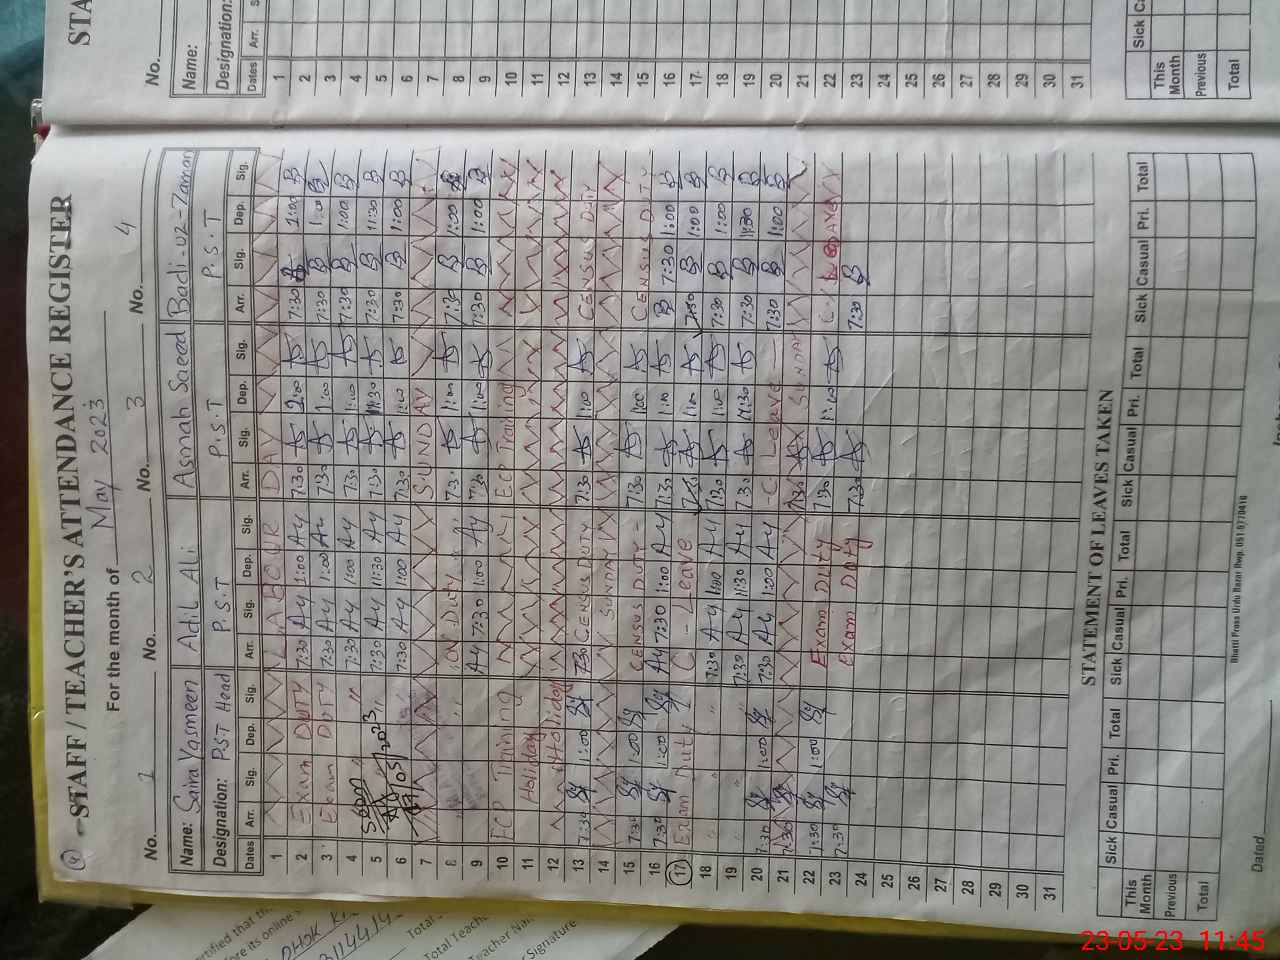 STAFF / TEACHER'S ATTENDANCE REGISTER
For the month of May 2023
No. 1 No. 2 No. 3 No. 4
Name: Saira Yasmeen Adil Ali Asmah Saeed Badi-uz-Zaman
Designation: PST Head P.S.T P.S.T P.S.T
Dates Arr. Sig. Dep. Sig. Arr. Sig. Dep. Sig. Arr. Sig. Dep. Sig. Arr. Sig. Dep. Sig.
1 LABOUR DAY
2 Exam DUTY 7:30 Ay 1:00 Ay 7:30 1:00 7:30 1:00
3 Exam DUTY 7:30 Ay 1:00 Ay 7:30 1:00 7:30 1:00
4 Seen 7:30 Ay 1:00 Ay 7:30 1:00 7:30 1:00
5 7:30 Ay 11:30 Ay 7:30 11:30 7:30 11:30
6 7:30 Ay 1:00 Ay 7:30 1:00 7:30 1:00
7 SUNDAY
8 ON DUTY 7:30 1:00 7:30 1:00
9 Ay 7:30 1:00 Ay 7:30 1:00 7:30 1:00
10 ECP Training ECP Training
11 Holiday
12 Holiday
13 7:30 Sy 1:00 Sy 7:30 CENSUS DUTY 7:30 1:00 CENSUS DUTY
14 SUNDAY
15 7:30 Sy 1:00 Sy CENSUS DUTY 7:30 1:00 CENSUS DUTY
16 7:30 Sy 1:00 Sy Ay 7:30 1:00 Ay 7:30 1:00 7:30 1:00
17 Exam Duty C - Leave 7:30 1:00 7:30 1:00
18 7:30 Ay 1:00 Ay 7:30 1:00 7:30 1:00
19 7:30 Ay 11:30 Ay 7:30 11:30 7:30 11:30
20 7:30 Sy 1:00 Sy 7:30 Ay 1:00 Ay C Leave 7:30 1:00
21 7:30 7:30 SUNDAY
22 7:30 Sy 1:00 Sy Exam DUTY 7:30 1:00
23 7:30 Sy Exam DUTY 7:30 7:30
24
25
26
27
28
29
30
31
STATEMENT OF LEAVES TAKEN
Sick Casual Pri. Total Sick Casual Pri. Total Sick Casual Pri. Total Sick Casual Pri. Total
This Month
Previous
Total
Bhatti Press Urdu Bazar Rwp. 051-5770416
Dated
STA
No.
Name:
Designation:
Dates Arr.
1
2
3
4
5
6
7
8
9
10
11
12
13
14
15
16
17
18
19
20
21
22
23
24
25
26
27
28
29
30
31
Sick
This Month
Previous
Total
Total Teache
Teacher Nam
Signature
23-05-23 11:45